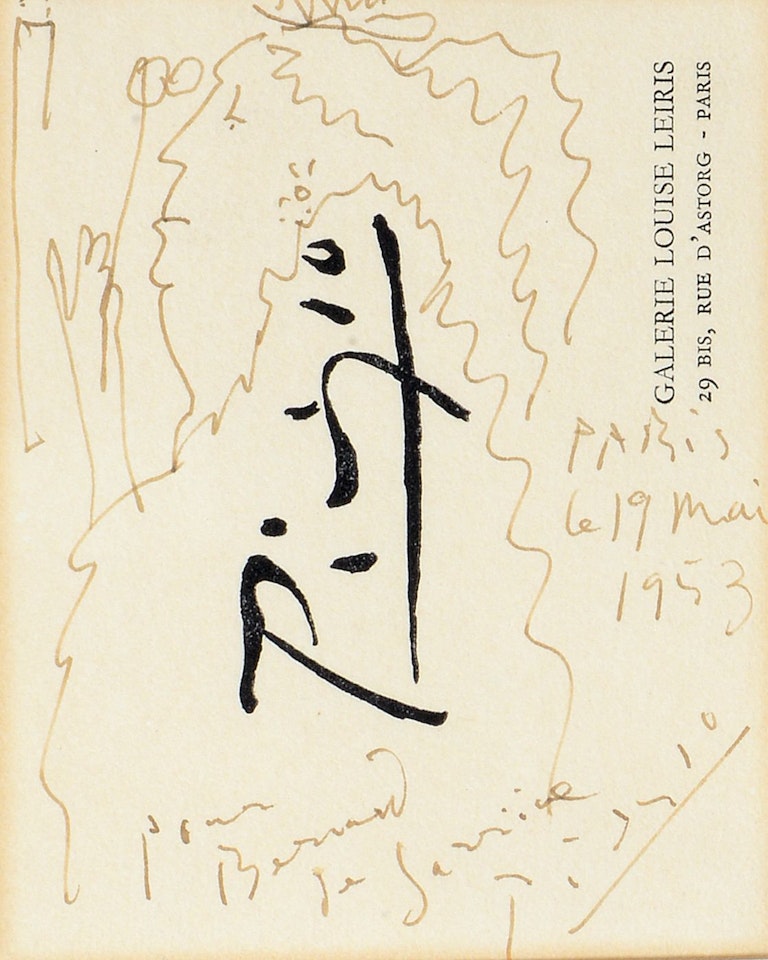 GALERIE LOUISE LEIRIS
29 BIS, RUE D'ASTORG - PARIS
Picasso
PARis
le 19 Mai
1953
pour
Bernard
Picasso